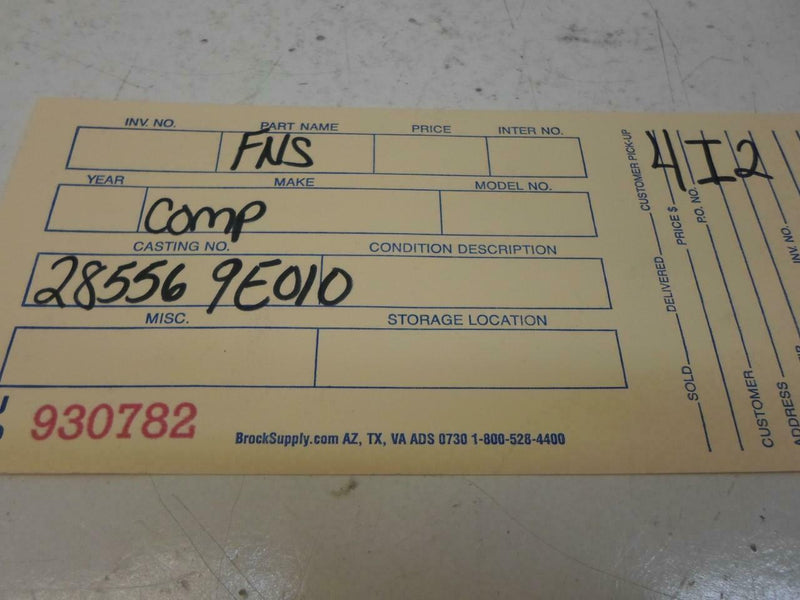 INV. NO. PART NAME PRICE INTER NO.
FNS
YEAR MAKE MODEL NO.
Comp
CASTING NO. CONDITION DESCRIPTION
28556 9E010
MISC. STORAGE LOCATION
930782
BrockSupply.com AZ, TX, VA ADS 0730 1-800-528-4400
4I2
CUSTOMER PICK-UP
DELIVERED
SOLD
PRICE $
P.O. NO.
CUSTOMER
ADDRESS
INV. NO.